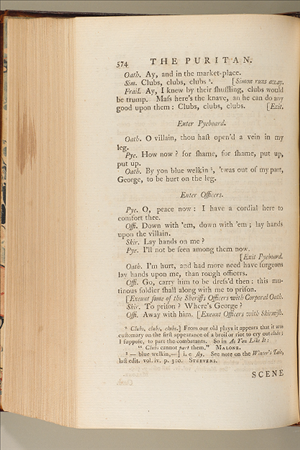 574 THE PURITAN.
Oath. Ay, and in the market-place.
Sim. Clubs, clubs, clubs ¹. [Simon runs away.
Frail. Ay, I knew by their ſhuffling, clubs would
be trump. Maſs here's the knave, an he can do any
good upon them: Clubs, clubs, clubs. [Exit.
Enter Pyeboard.
Oath. O villain, thou haſt open'd a vein in my
leg.
Pye. How now? for ſhame, for ſhame, put up,
put up.
Oath. By yon blue welkin ², 'twas out of my part,
George, to be hurt on the leg.
Enter Officers.
Pye. O, peace now: I have a cordial here to
comfort thee.
Off. Down with 'em, down with 'em; lay hands
upon the villain.
Skir. Lay hands on me?
Pye. I'll not be ſeen among them now.
[Exit Pyeboard.
Oath. I'm hurt, and had more need have ſurgeons
lay hands upon me, than rough officers.
Off. Go, carry him to be dreſs'd then: this mu-
tinous ſoldier ſhall along with me to priſon.
[Exeunt ſome of the Sheriff's Officers with Corporal Oath.
Skir. To priſon? Where's George?
Off. Away with him. [Exeunt Officers with Skirmiſh.
¹ Clubs, clubs, clubs.] From our old plays it appears that it was
cuſtomary on the firſt appearance of a broil or riot to cry out clubs;
I ſuppoſe, to part the combatants. So in As You Like It:
" Clubs cannot part them." MALONE.
² — blue welkin,—] i. e. ſky. See note on the Winter's Tale,
laſt edit. vol. iv. p. 300. STEEVENS.
SCENE